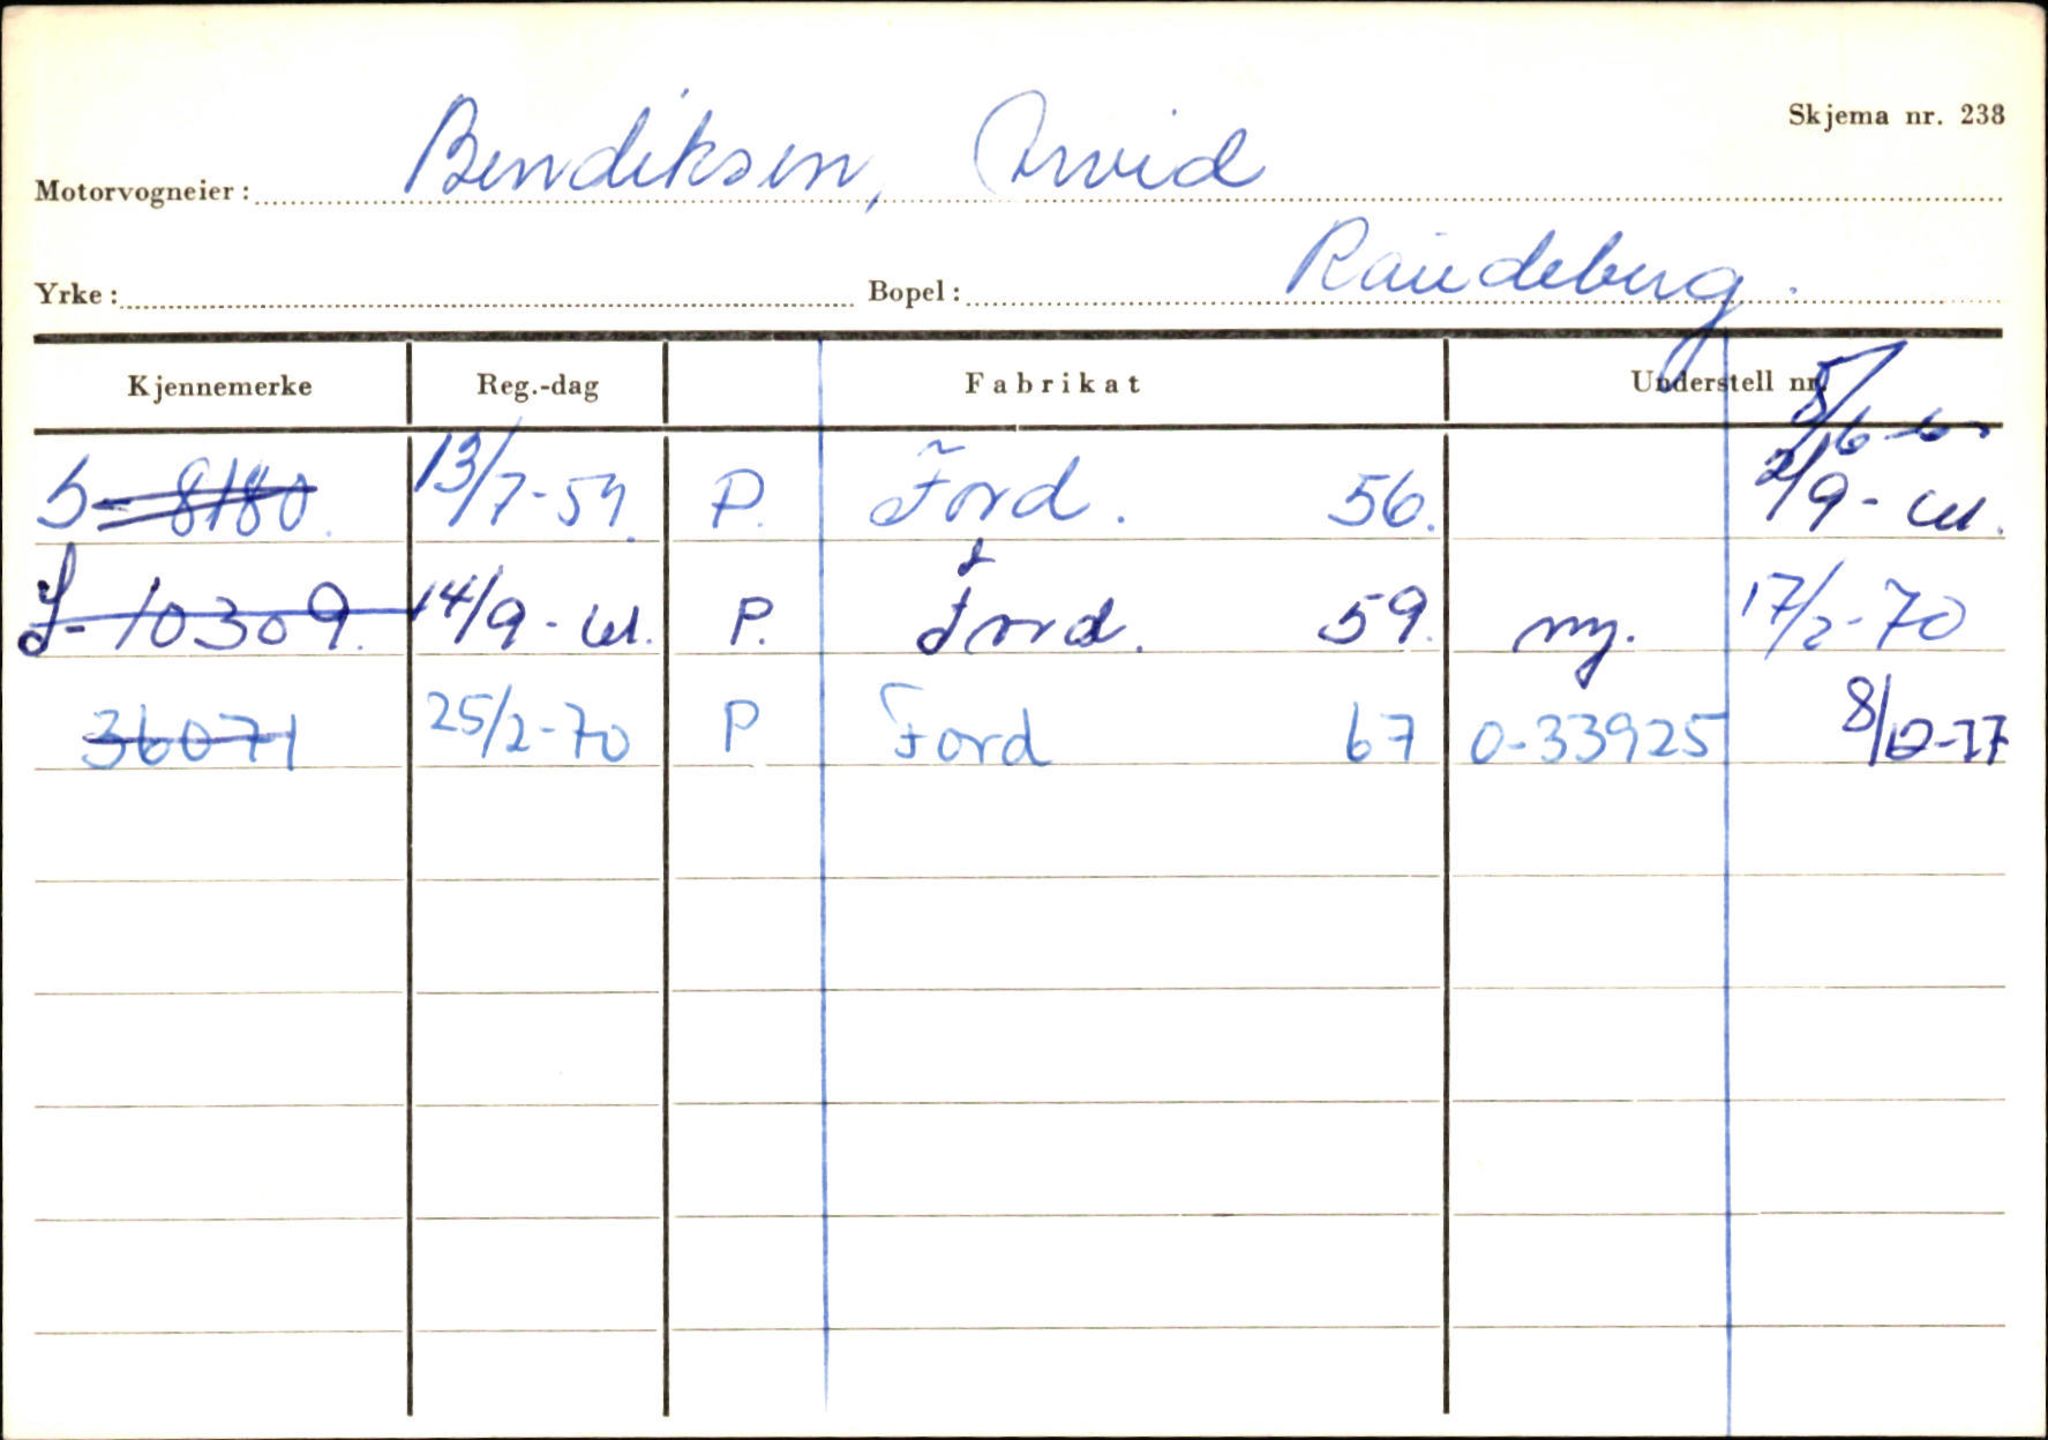 Skjema nr. 238
Motorvogneier: Bendiksen, Arvid
Yrke: Bopel: Raudeberg.
Kjennemerke Reg.-dag Fabrikat Understell nr.
8/6-6
S-8180. 13/7-59. P. Ford. 56. 2/9-61.
S-10309. 14/9-61. P. Ford. 59. ny. 17/2-70
36071 25/2-70 P Ford 67 0-33925 8/12-77